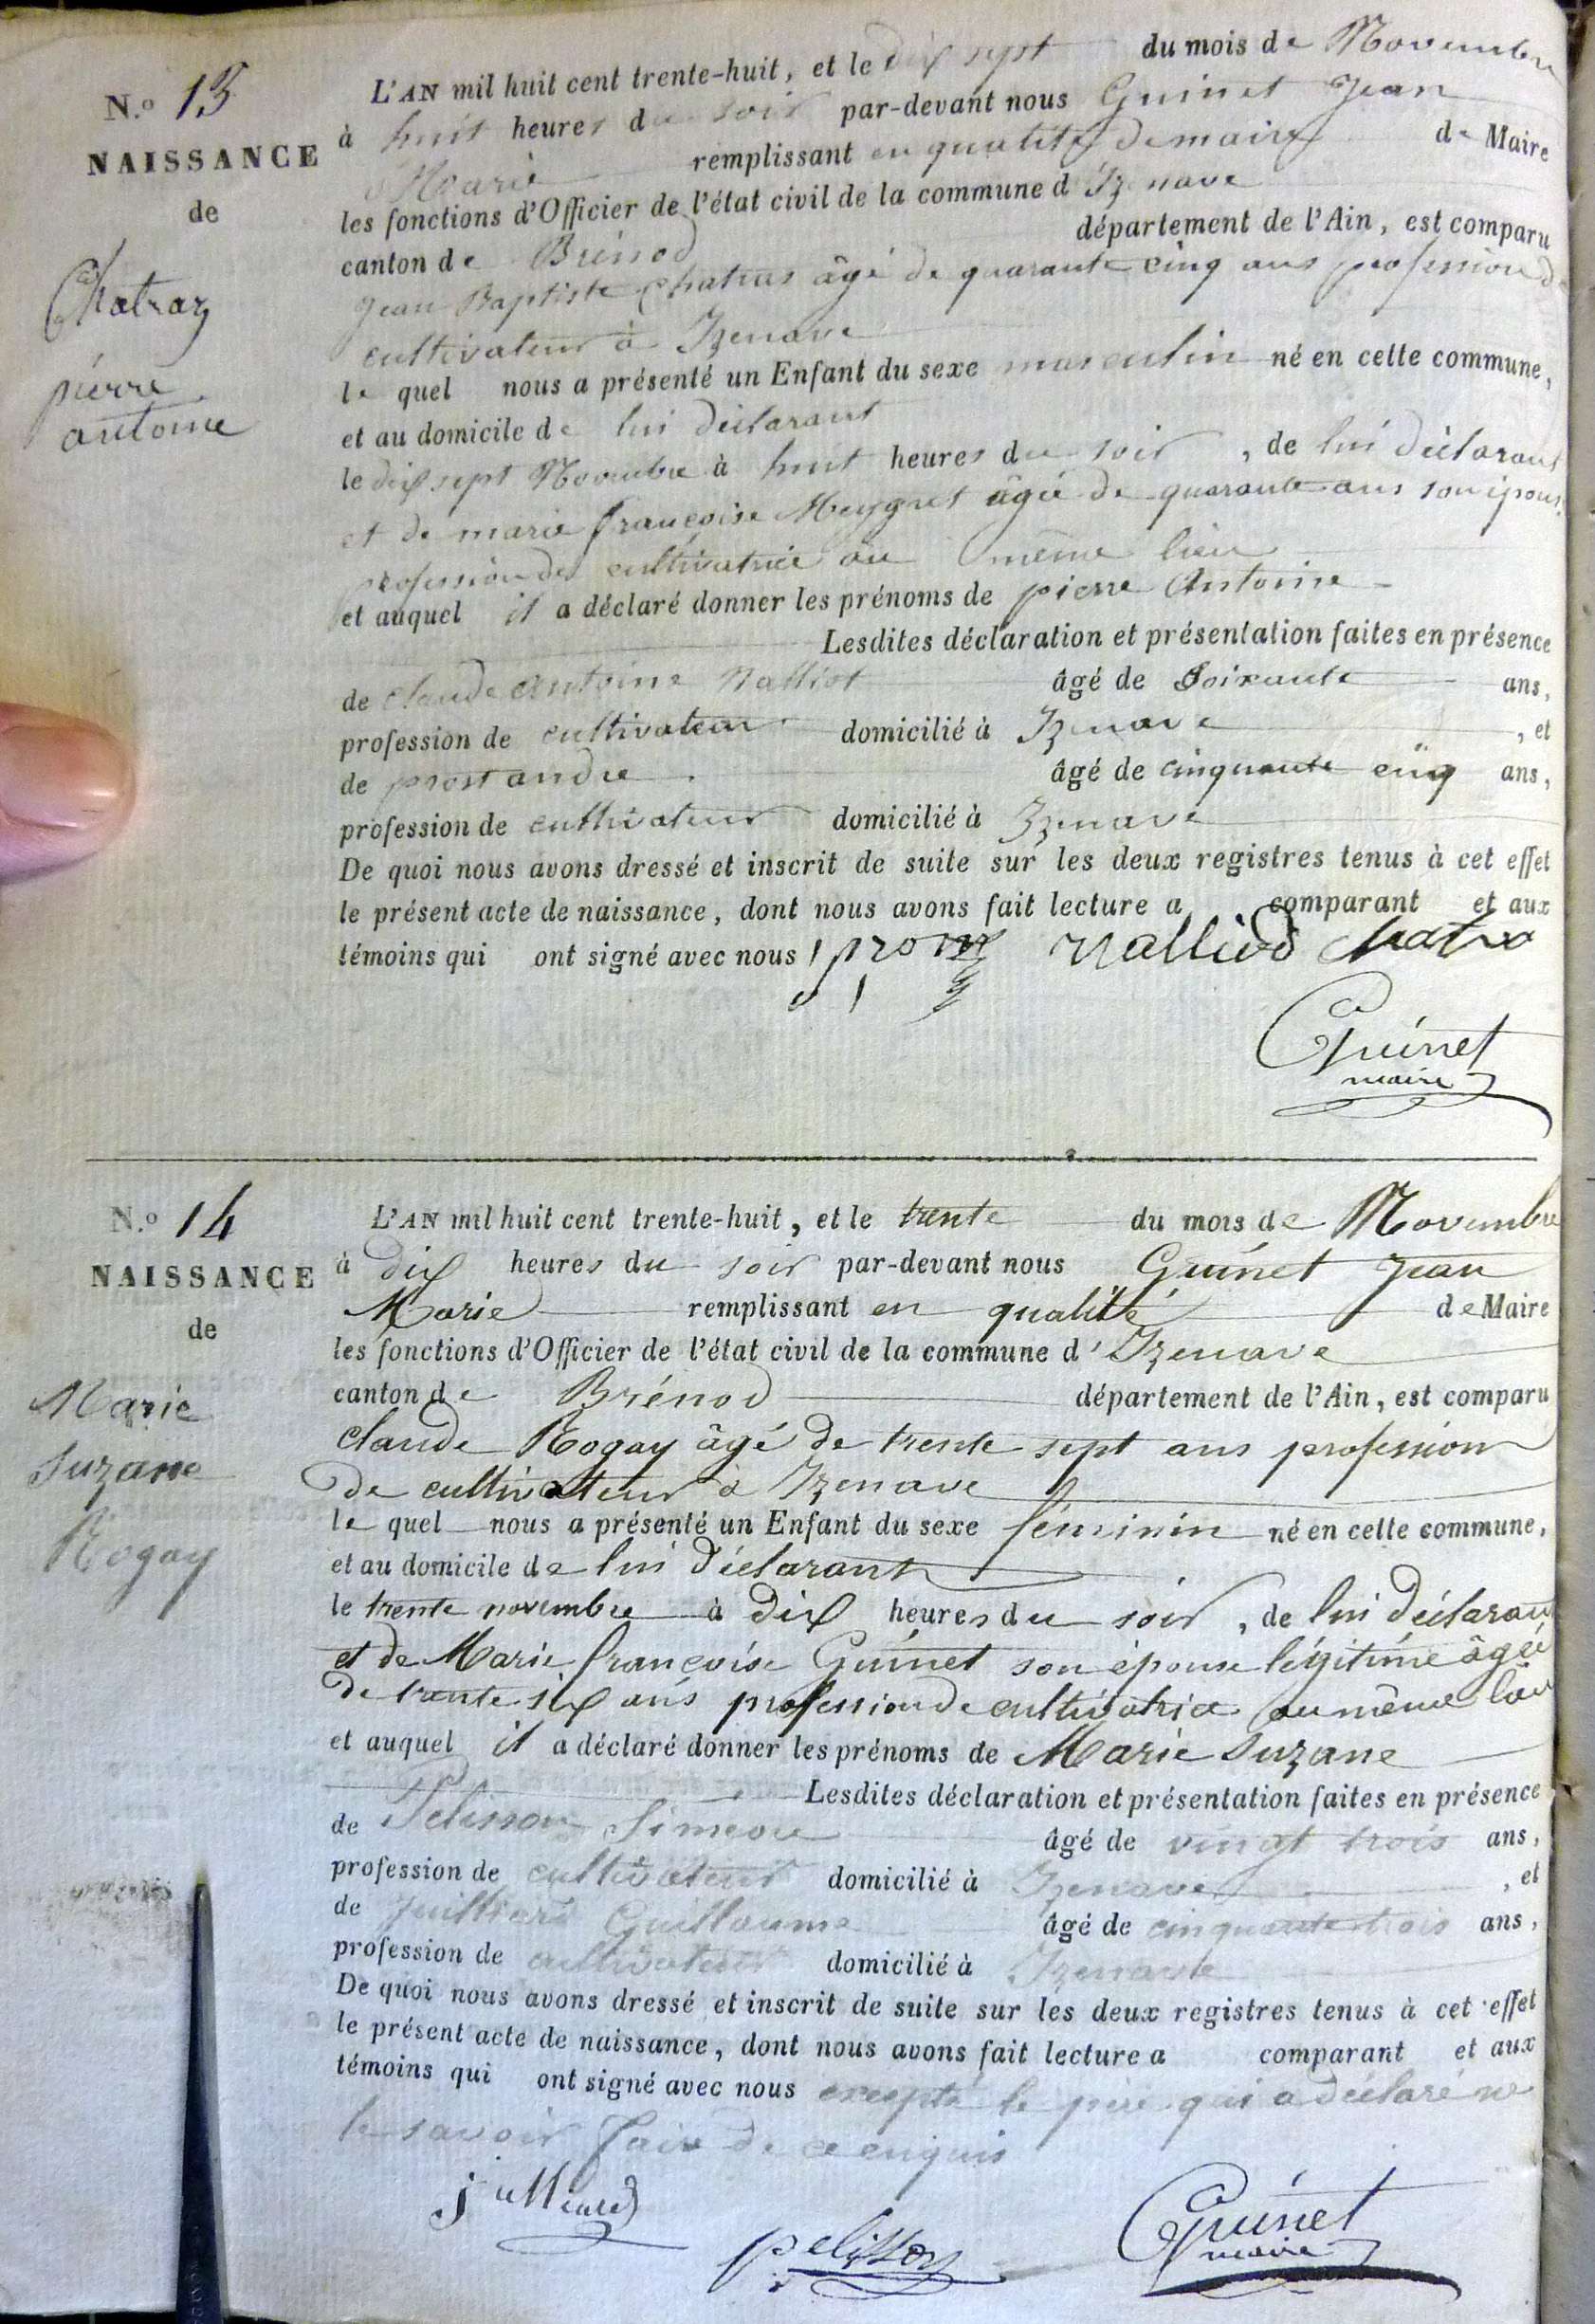 N.o 13
NAISSANCE
de
Chatraz
pierre
antoine
L'AN mil huit cent trente-huit, et le dix sept du mois de Novembre
à huit heures du soir par-devant nous Guinet Jean
Marie remplissant en qualité de maire de Maire
les fonctions d'Officier de l'état civil de la commune d'Izenave
canton de Brénod département de l'Ain, est comparu
Jean Baptiste Chatras âgé de quarante cinq ans profession de
cultivateur à Izenave
le quel nous a présenté un Enfant du sexe masculin né en cette commune,
et au domicile de lui déclarant
le dix sept Novembre à huit heures du soir, de lui déclarant
et de marie françoise Meygret âgée de quarante ans son épouse
profession de cultivatrice au même lieu
et auquel il a déclaré donner les prénoms de pierre Antoine
Lesdites déclaration et présentation faites en présence
de claude antoine Nalliot âgé de Soixante ans,
profession de cultivateur domicilié à Izenave, et
de prost andre âgé de cinquante cinq ans,
profession de cultivateur domicilié à Izenave
De quoi nous avons dressé et inscrit de suite sur les deux registres tenus à cet effet
le présent acte de naissance, dont nous avons fait lecture a comparant et aux
témoins qui ont signé avec nous Nalliod Chatra
Guinet
maire
N.o 14
NAISSANCE
de
Marie
Suzane
Rogay
L'AN mil huit cent trente-huit, et le trente du mois de Novembre
à dix heures du soir par-devant nous Guinet Jean
Marie remplissant en qualité de Maire
les fonctions d'Officier de l'état civil de la commune d'Izenave
canton de Brénod département de l'Ain, est comparu
claude Rogay âgé de trente sept ans profession
de cultivateur à Izenave
le quel nous a présenté un Enfant du sexe féminin né en cette commune,
et au domicile de lui déclarant
le trente novembre à dix heures du soir, de lui déclarant
et de Marie françoise Guinet son épouse légitime âgée
de trante six ans profession de cultivatrice au même lieu
et auquel il a déclaré donner les prénoms de Marie Suzane
Lesdites déclaration et présentation faites en présence
de Pelisson Simeon âgé de vingt trois ans,
profession de cultivateur domicilié à Izenave, et
de Juilliard Guillaume âgé de cinquante trois ans,
profession de cultivateur domicilié à Izenave
De quoi nous avons dressé et inscrit de suite sur les deux registres tenus à cet effet
le présent acte de naissance, dont nous avons fait lecture a comparant et aux
témoins qui ont signé avec nous excepté le père qui a déclaré ne
le savoir faire de ce enquis
juilliard
pelisson
Guinet
maire